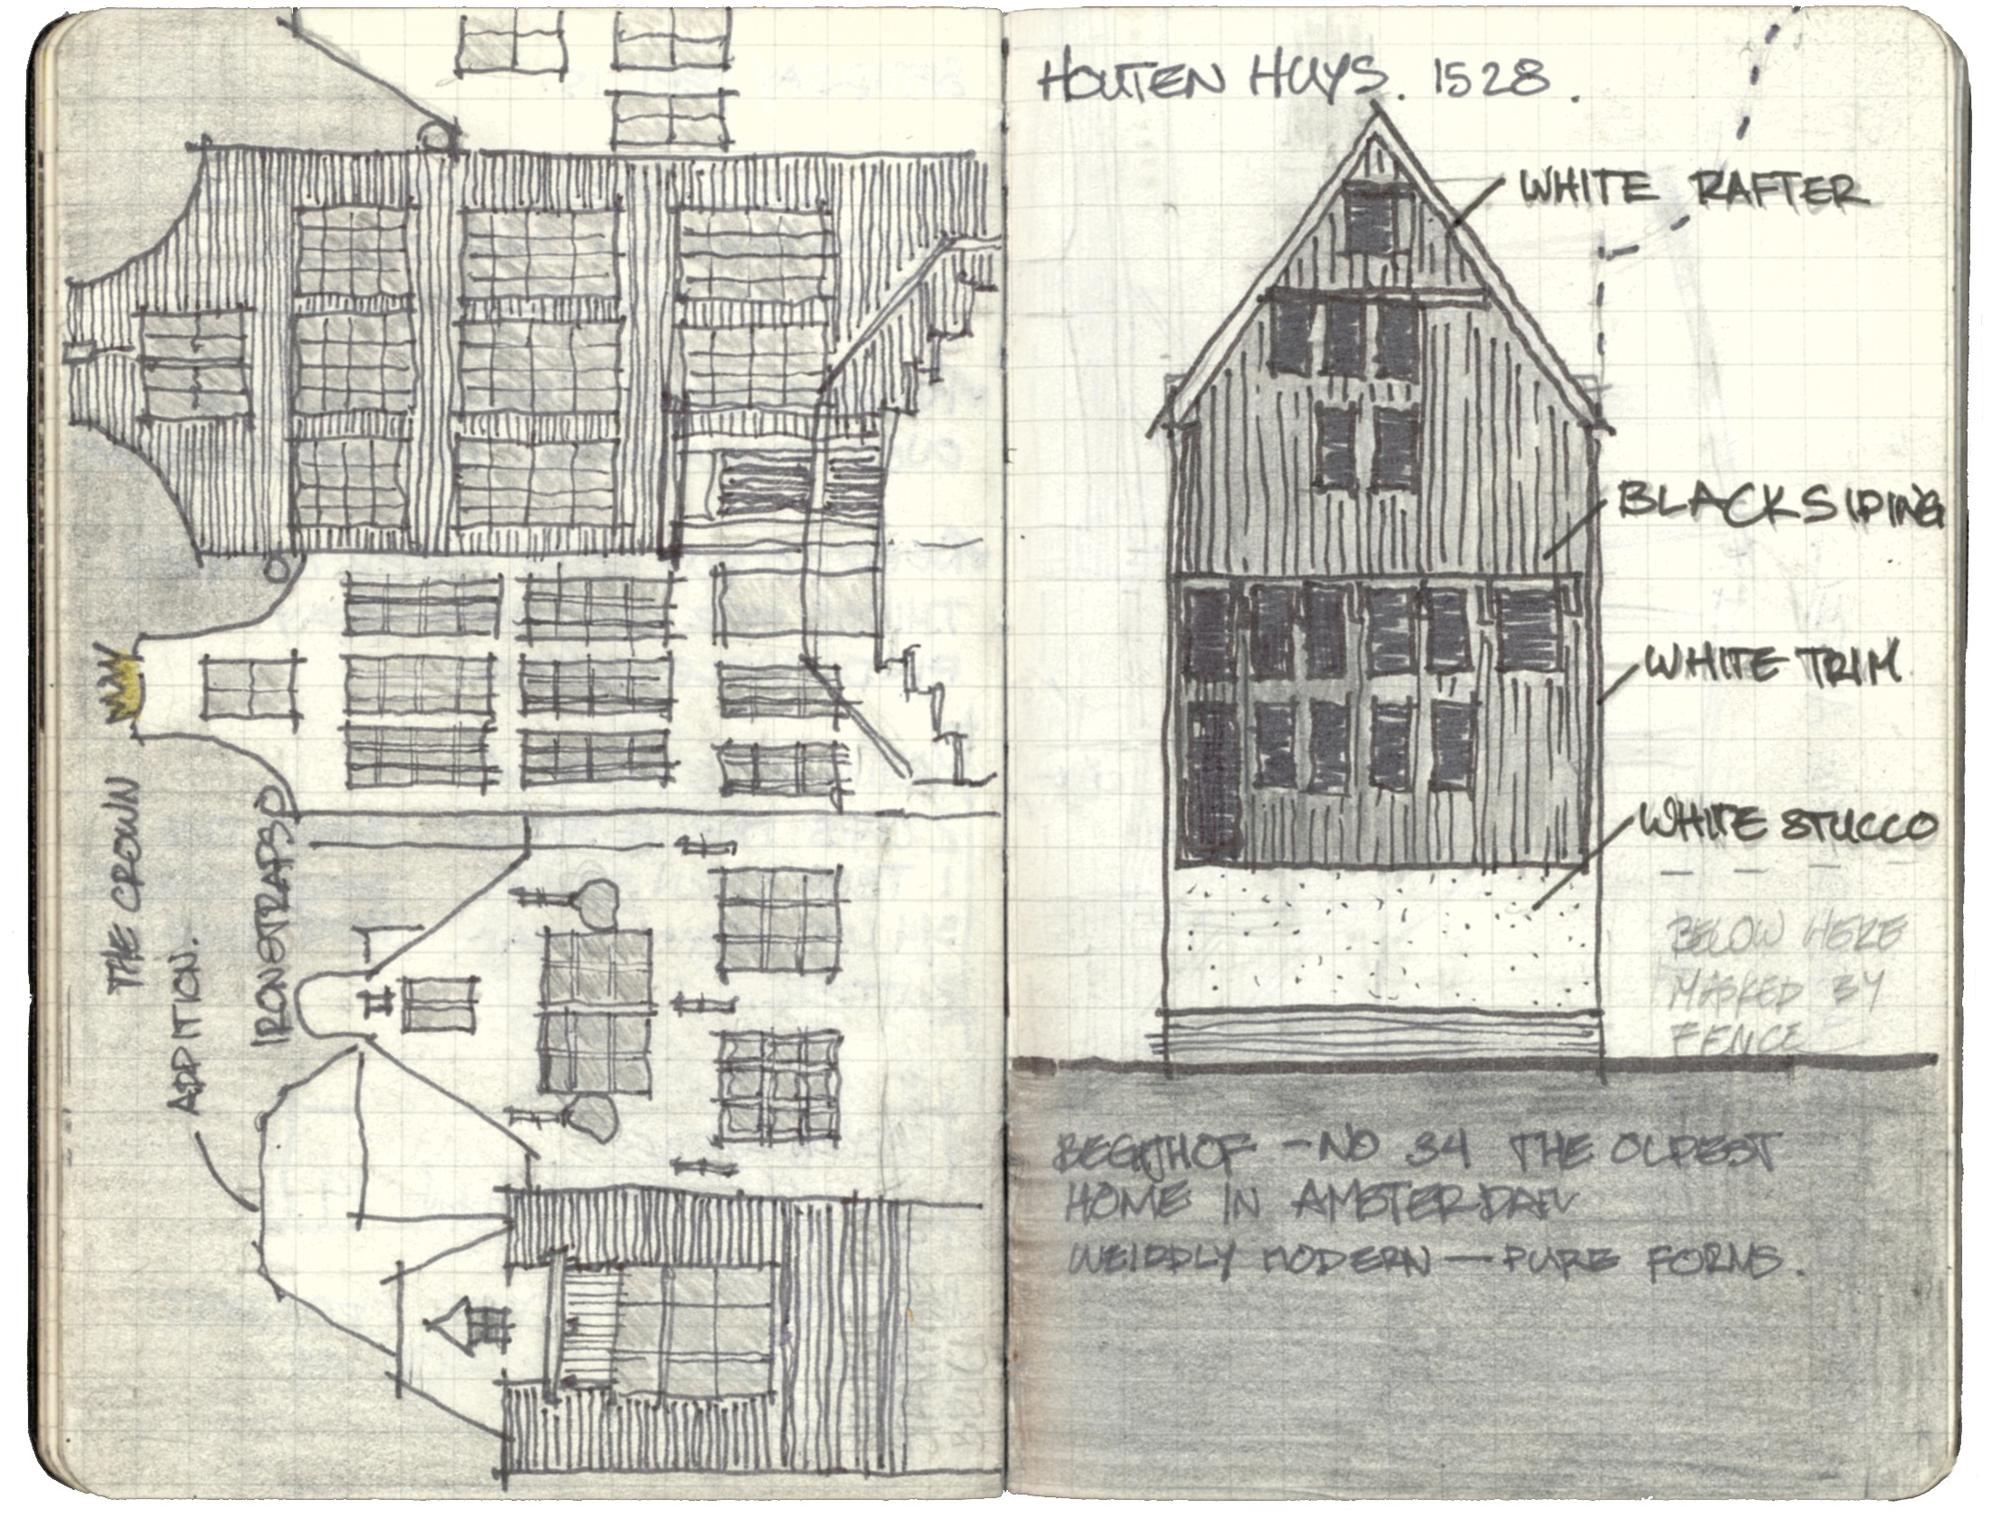 THE CROWN
ADDITION.
IRON STRAPS
HOUTEN HUYS. 1528.
WHITE RAFTER
BLACK SIDING
WHITE TRIM
WHITE STUCCO
BELOW HERE
MASKED BY
FENCE
BEGIJHOF - NO 34 THE OLDEST
HOME IN AMSTERDAM
WEIRDLY MODERN — PURE FORMS.